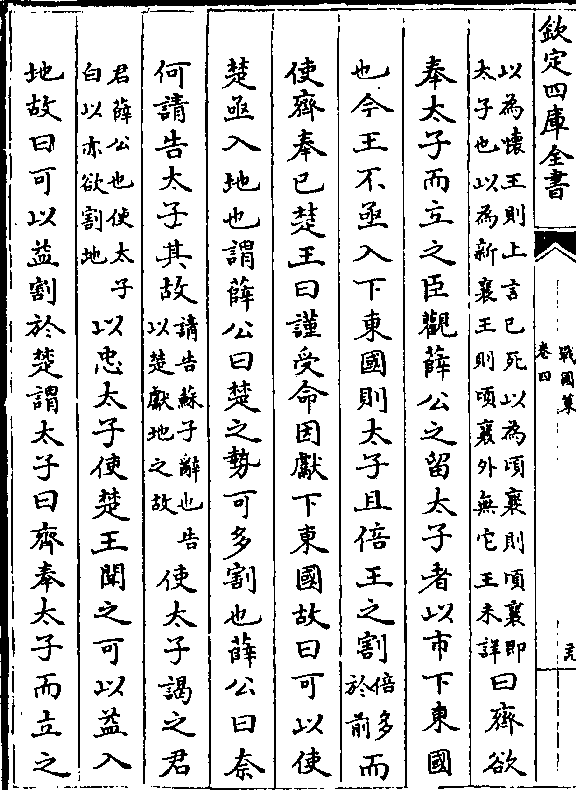 欽定四庫全書
戰國策
卷四
以為懷王則上言已死以為頃襄則頃襄即
太子也以為新襄王則頃襄外無它王未詳
曰齊欲
奉太子而立之臣觀薛公之留太子者以市下東國
也今王不亟入下東國則太子且倍王之割
倍多
於前
而
使齊奉已楚王曰謹受命因獻下東國故曰可以使
楚亟入地也謂薛公曰楚之勢可多割也薛公曰奈
何請告太子其故
請告蘇子辭也告
以楚獻地之故
使太子謁之君
君薛公也使太子
白以亦欲割地
以忠太子使楚王聞之可以益入
地故曰可以益割於楚謂太子曰齊奉太子而立之